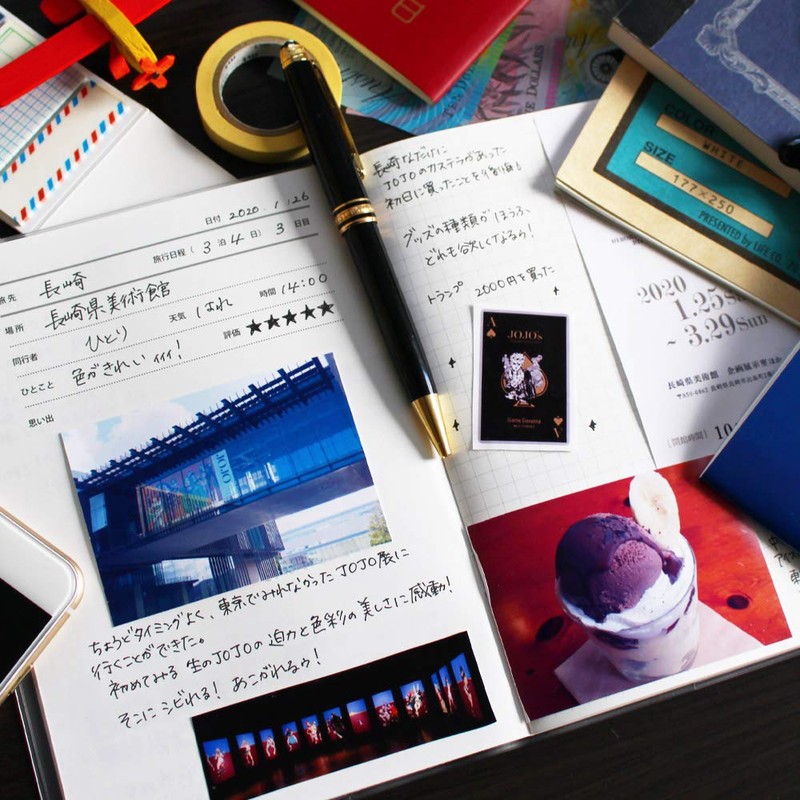 日付 2020.1.26
旅行日程(3泊4日) 3日目
旅先 長崎
場所 長崎県美術館
同行者 ひとり 天気 はれ 時間 14:00
ひとこと 色がきれいィィ! 評価 ★★★★★
思い出
JOJO
ちょうどタイミングよく、東京でみれなかったJOJO展に
行くことができた。
初めてみる生のJOJOの迫力と色彩の美しさに感動!
そこにシビれる!あこがれるゥ!
長崎なだけに
JOJOのカステラがあった
初日に買ったことを後悔!
グッズの種類がほうふ、
どれも欲しくなるぅ!
トランプ 2000円を買った
A
JOJO's
A
2020
1.25Sat
~3.29Sun
長崎県美術館 企画展示室
[開館時間] 10
COLOR
WHITE
SIZE
177×250
PRESENTED by LIFE CO.
TEN DOLLARS
DOLLARS